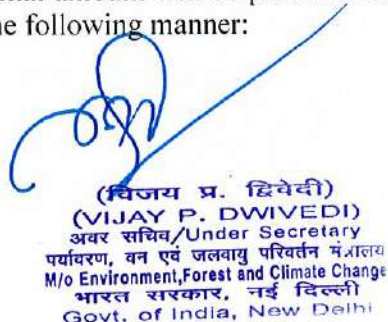 he following manner:
(विजय प्र. द्विवेदी)
(VIJAY P. DWIVEDI)
अवर सचिव/Under Secretary
पर्यावरण, वन एवं जलवायु परिवर्तन मंत्रालय
M/o Environment,Forest and Climate Change
भारत सरकार, नई दिल्ली
Govt. of India, New Delhi